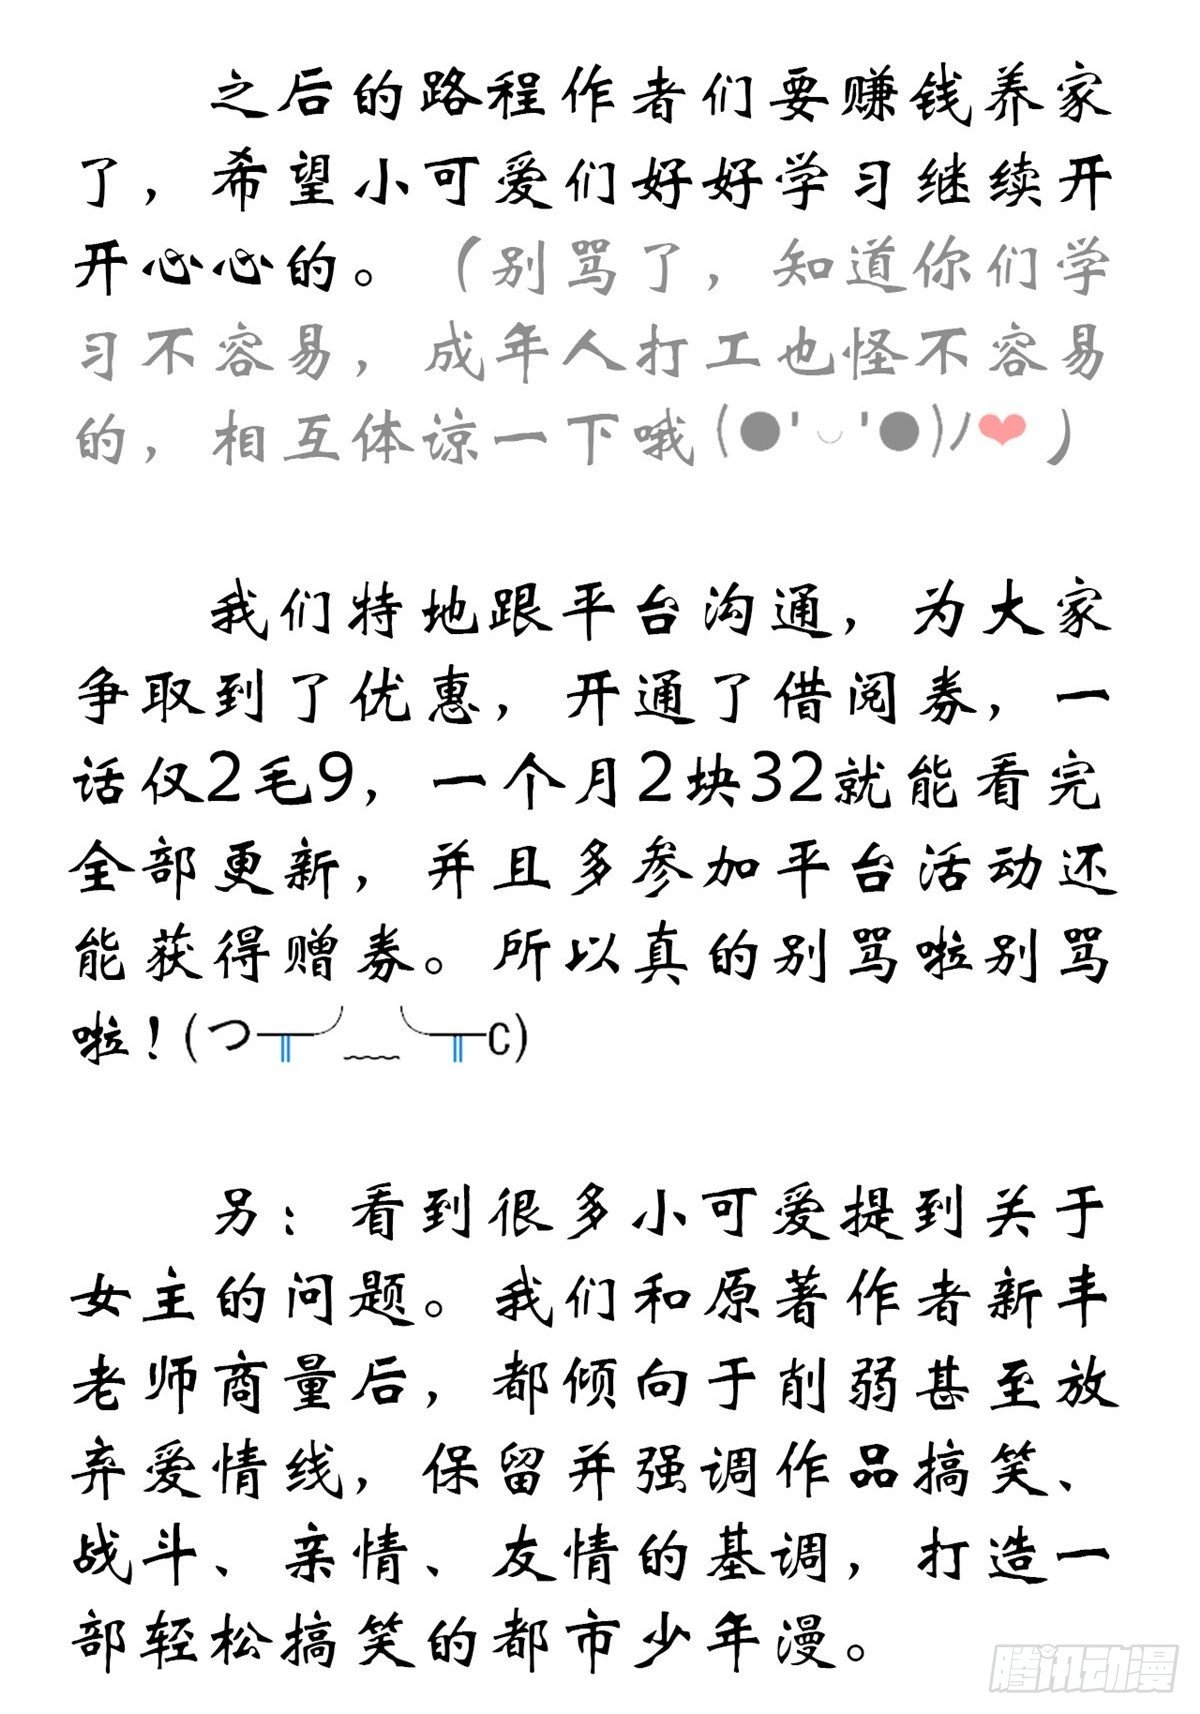 之后的路程作者们要赚钱养家
了，希望小可爱们好好学习继续开
开心心的。（别骂了，知道你们学
习不容易，成年人打工也怪不容易
的，相互体谅一下哦(●'◡'●)ﾉ❤）
我们特地跟平台沟通，为大家
争取到了优惠，开通了借阅券，一
话仅2毛9，一个月2块32就能看完
全部更新，并且多参加平台活动还
能获得赠券。所以真的别骂啦别骂
啦！(つ╥╯﹏╰╥c)
另：看到很多小可爱提到关于
女主的问题。我们和原著作者新丰
老师商量后，都倾向于削弱甚至放
弃爱情线，保留并强调作品搞笑、
战斗、亲情、友情的基调，打造一
部轻松搞笑的都市少年漫。
腾讯动漫